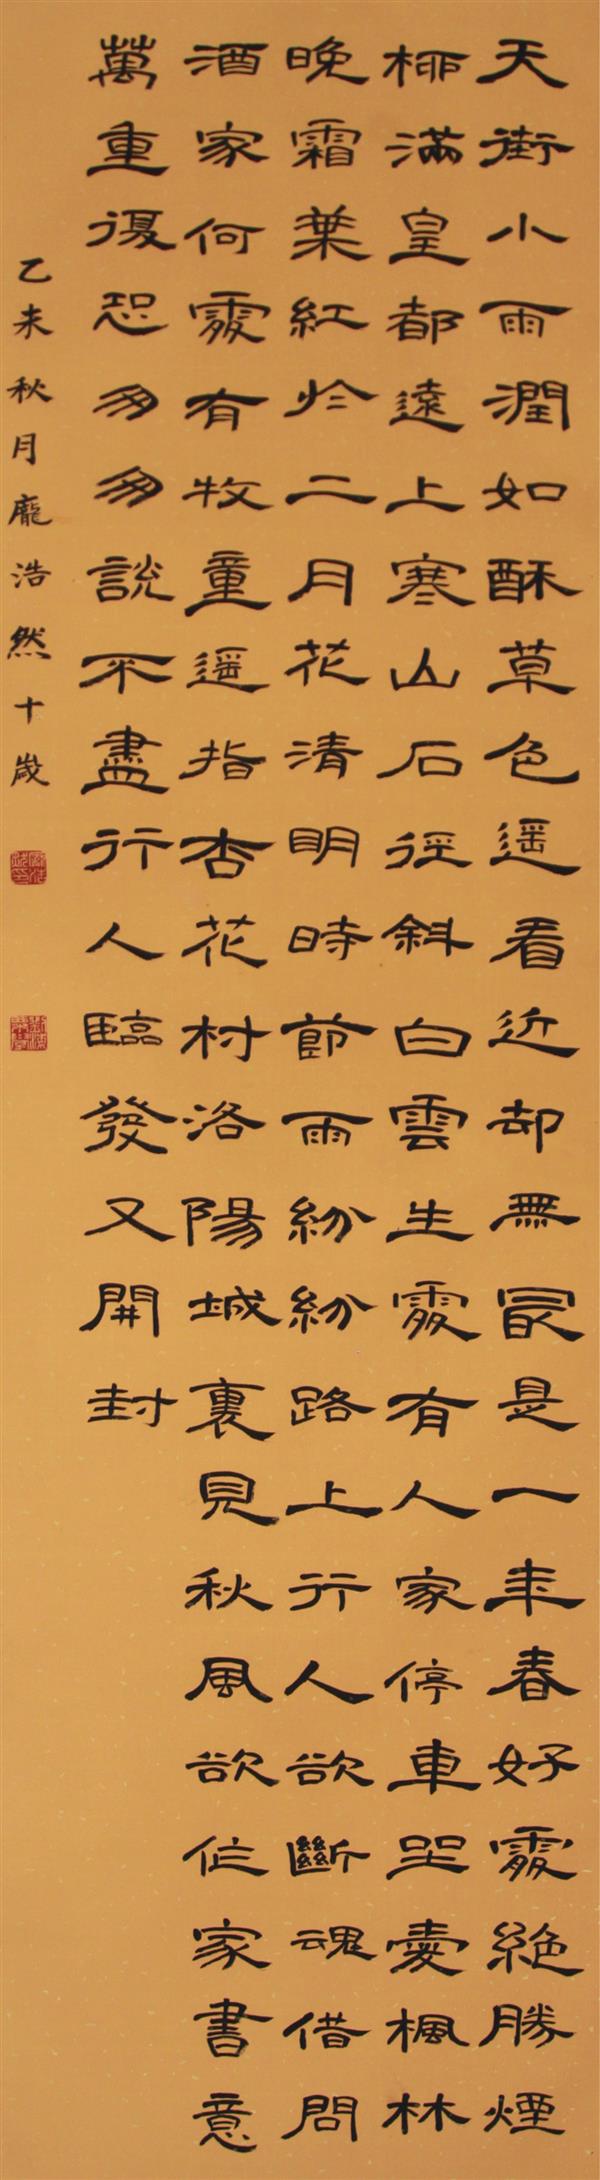 天街小雨潤如酥草色遥看近却無最是一年春好處絶勝煙
柳滿皇都遠上寒山石徑斜白雲生處有人家停車坐愛楓林
晚霜葉紅於二月花清明時節雨紛紛路上行人欲斷魂借問
酒家何處有牧童遥指杏花村洛陽城裏見秋風欲作家書意
萬重復恐匆匆說不盡行人臨發又開封
乙未秋月龐浩然十歲